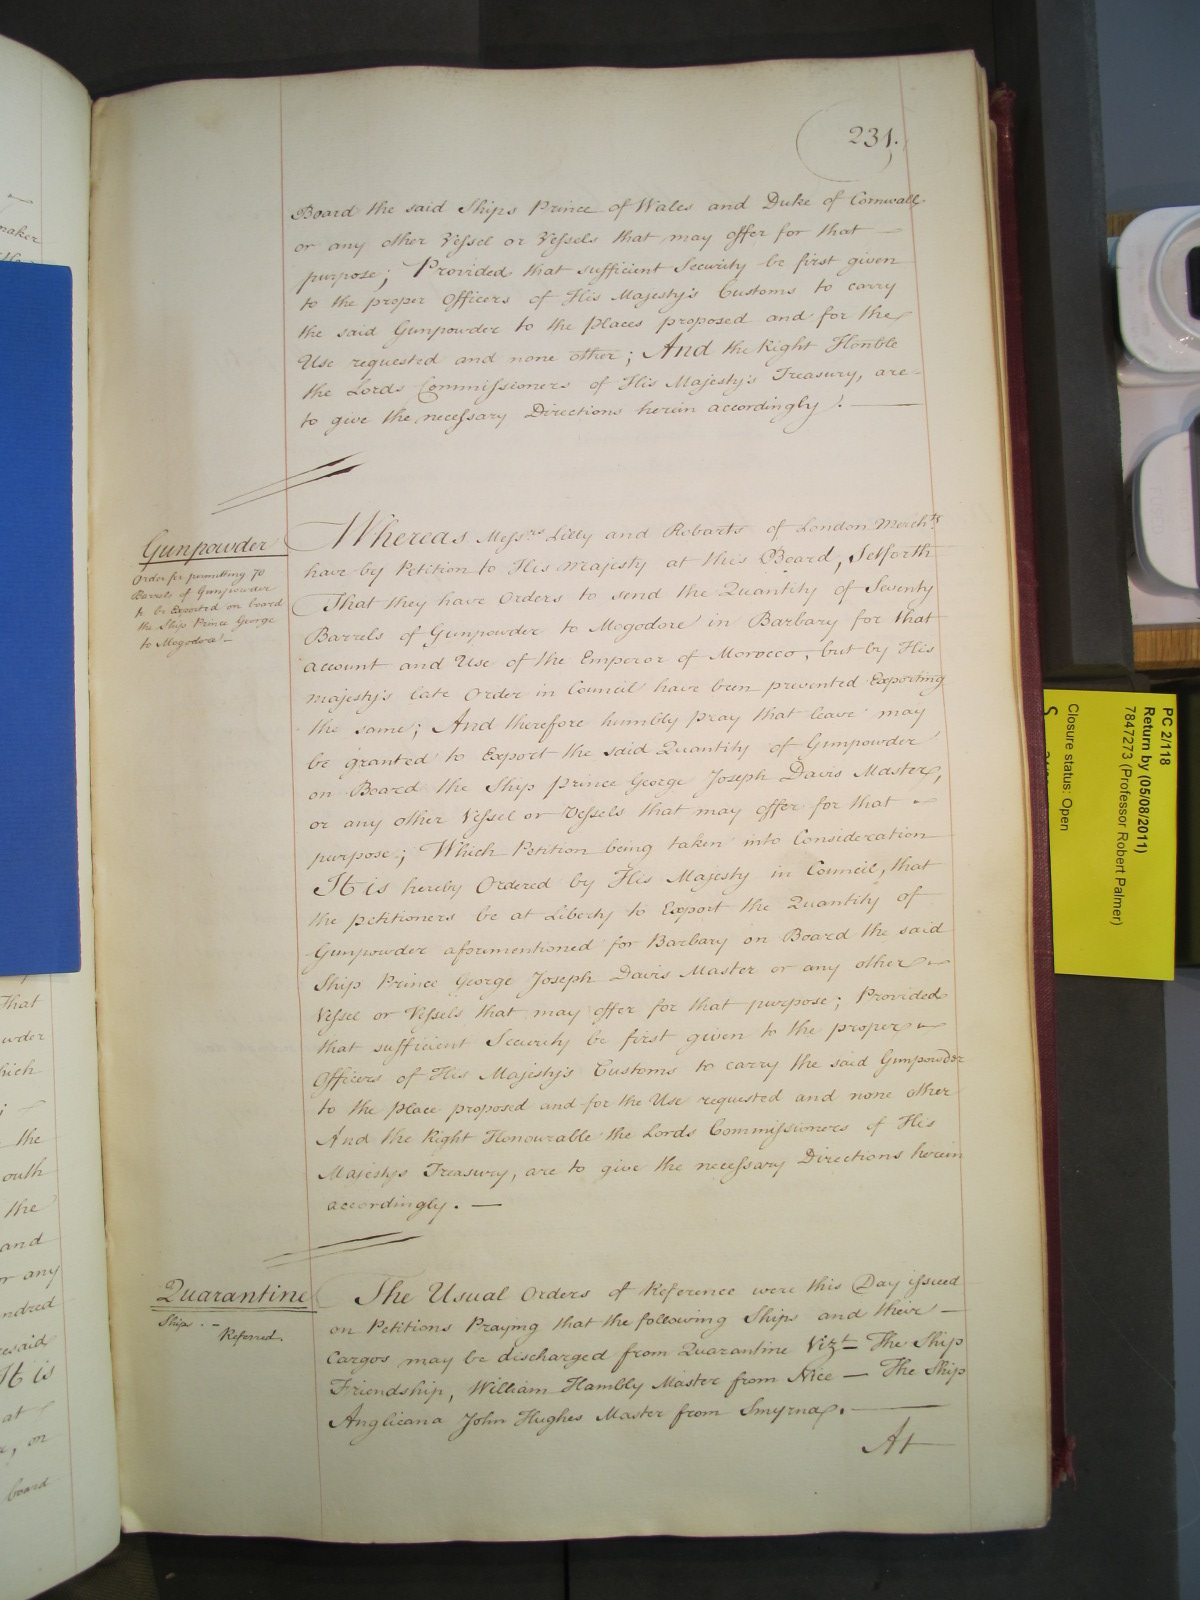 231.
Board the said Ships Prince of Wales and Duke of Cornwall
or any other Vessel or Vessels that may offer for that —
purpose; Provided that sufficient Security be first given
to the proper Officers of His Majesty's Customs to carry
the said Gunpowder to the Places proposed and for the
Use requested and none other; And the Right Honble
the Lords Commissioners of His Majesty's Treasury, are -
to give the necessary Directions herein accordingly. —
Gunpowder
Order for permitting 70
Barrels of Gunpowder
to be Exported on board
the Ship Prince George
to Mogodora. —
Whereas Messrs Lilly and Robarts of London Merchts
have by Petition to His Majesty at this Board, Setforth
That they have Orders to send the Quantity of Seventy
Barrels of Gunpowder to Mogodore in Barbary for that
account and Use of the Emperor of Morocco, but by His
Majesty's late Order in Council have been prevented Exporting
the same; And therefore humbly pray that leave may
be granted to Export the said Quantity of Gunpowder
on Board the Ship Prince George Joseph Davis Master,
or any other Vessel or Vessels that may offer for that
purpose; Which Petition being taken into Consideration
It is hereby Ordered by His Majesty in Council, that
the petitioners be at Liberty to Export the Quantity of
Gunpowder aforementioned for Barbary on Board the said
Ship Prince George Joseph Davis Master or any other
Vessel or Vessels that may offer for that purpose; Provided
that sufficient Security be first given to the proper
Officers of His Majesty's Customs to carry the said Gunpowder
to the Place proposed and for the Use requested and none other
And the Right Honourable the Lords Commissioners of His
Majestys Treasury, are to give the necessary Directions herein
accordingly. —
Quarantine
Ships. —
Referred.
The Usual Orders of Reference were this Day issued
on Petitions Praying that the following Ships and their —
Cargos may be discharged from Quarantine Vizt The Ship
Friendship, William Hambly Master from Nice — The Ship
Anglicana John Hughes Master from Smyrna. —
At
maker
That
wder
hich
the
outh
the
and
or any
ndred
resaid
It is
at
r, on
board
PC 2/118
Return by (05/08/2011)
7847273 (Professor Robert Palmer)
Closure status: Open
S